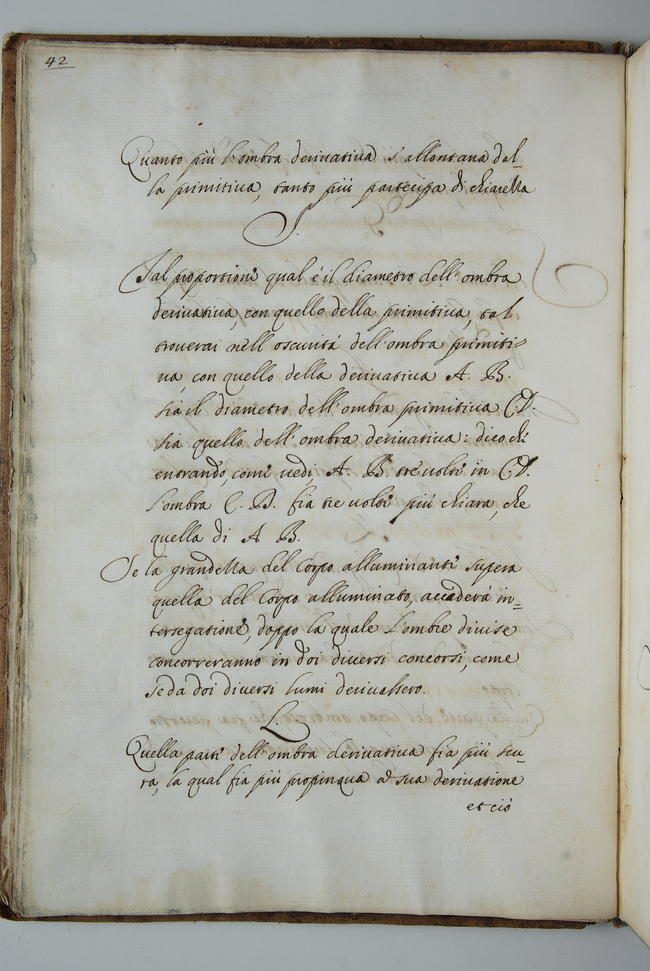 42
Quanto più l'ombra derivativa s'allontana del-
la primitiva, tanto più partecipa di chiarezza
S.
Tal proportione qual è il diametro dell'ombra
derivativa, con quello della primitiva, tal
troverai nell'oscurità dell'ombra primiti=
va, con quello della derivativa A. B.
sia il diametro dell'ombra primitiva C. D.
sia quello dell'ombra derivativa: dico che
entrando, come vedi, A. B. tre volte in C. D.
l'ombra C. B. fia tre volte più chiara, che
quella di A B.
Se la grandezza del Corpo alluminante supera
quella del Corpo alluminato, accaderà in=
tersegatione, doppo la quale l'ombre divise
concorreranno in doi diversi concorsi, come
se da doi diversi lumi derivassero.
L
Quella parte dell'ombra derivativa fia più scu-
ra, la qual fia più propinqua a sua derivatione
et ciò